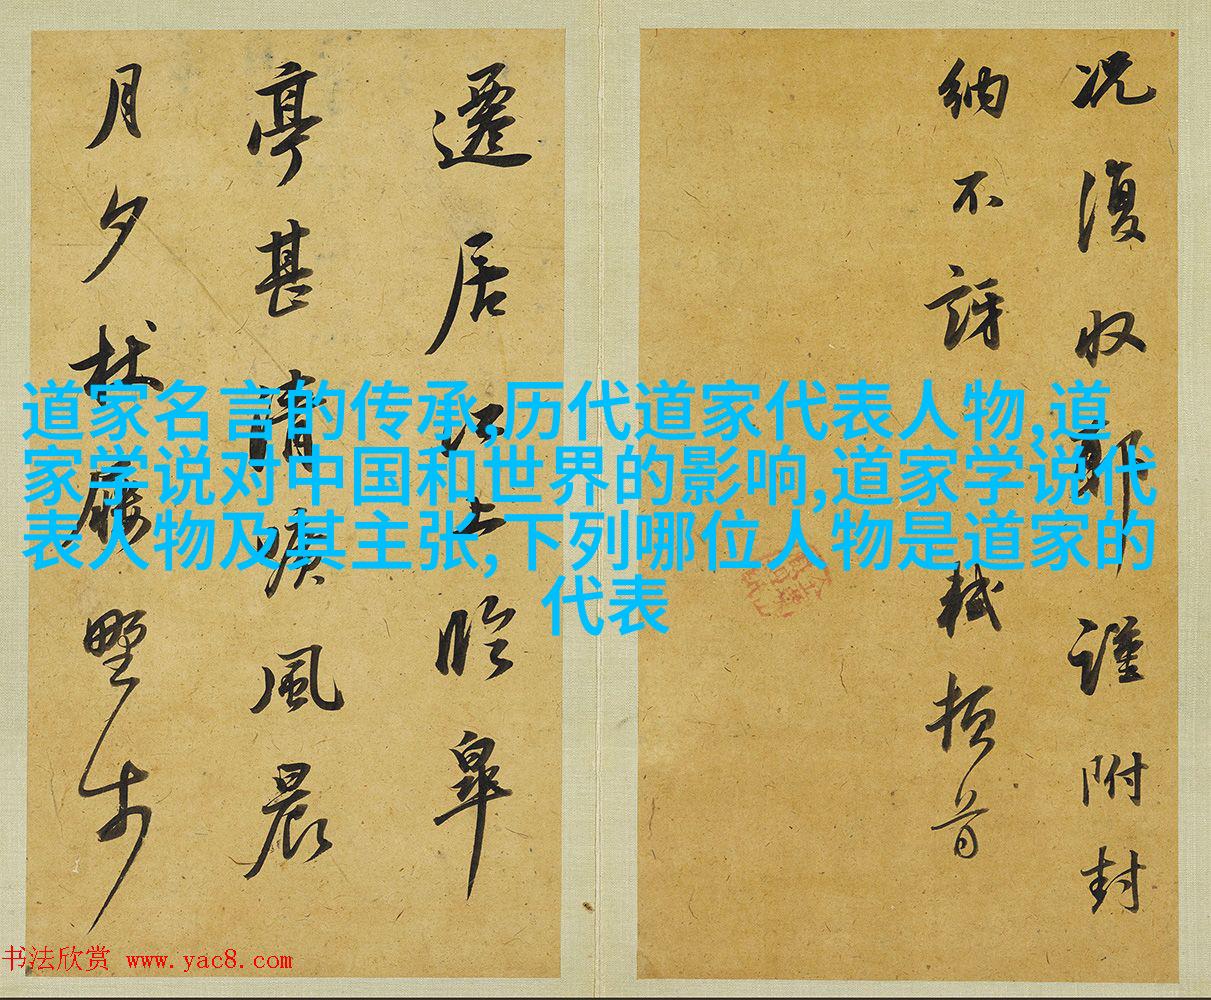 道家名言的传承,历代道家代表人物,道
家学说对中国和世界的影响,道家学说代
表人物及其主张,下列哪位人物是道家的
代表
况復収謹附封
納不訝軾頓首
遷居江上臨皋
亭甚清曠風晨
月夕杖屨野步
书法欣赏 www.yac8.com